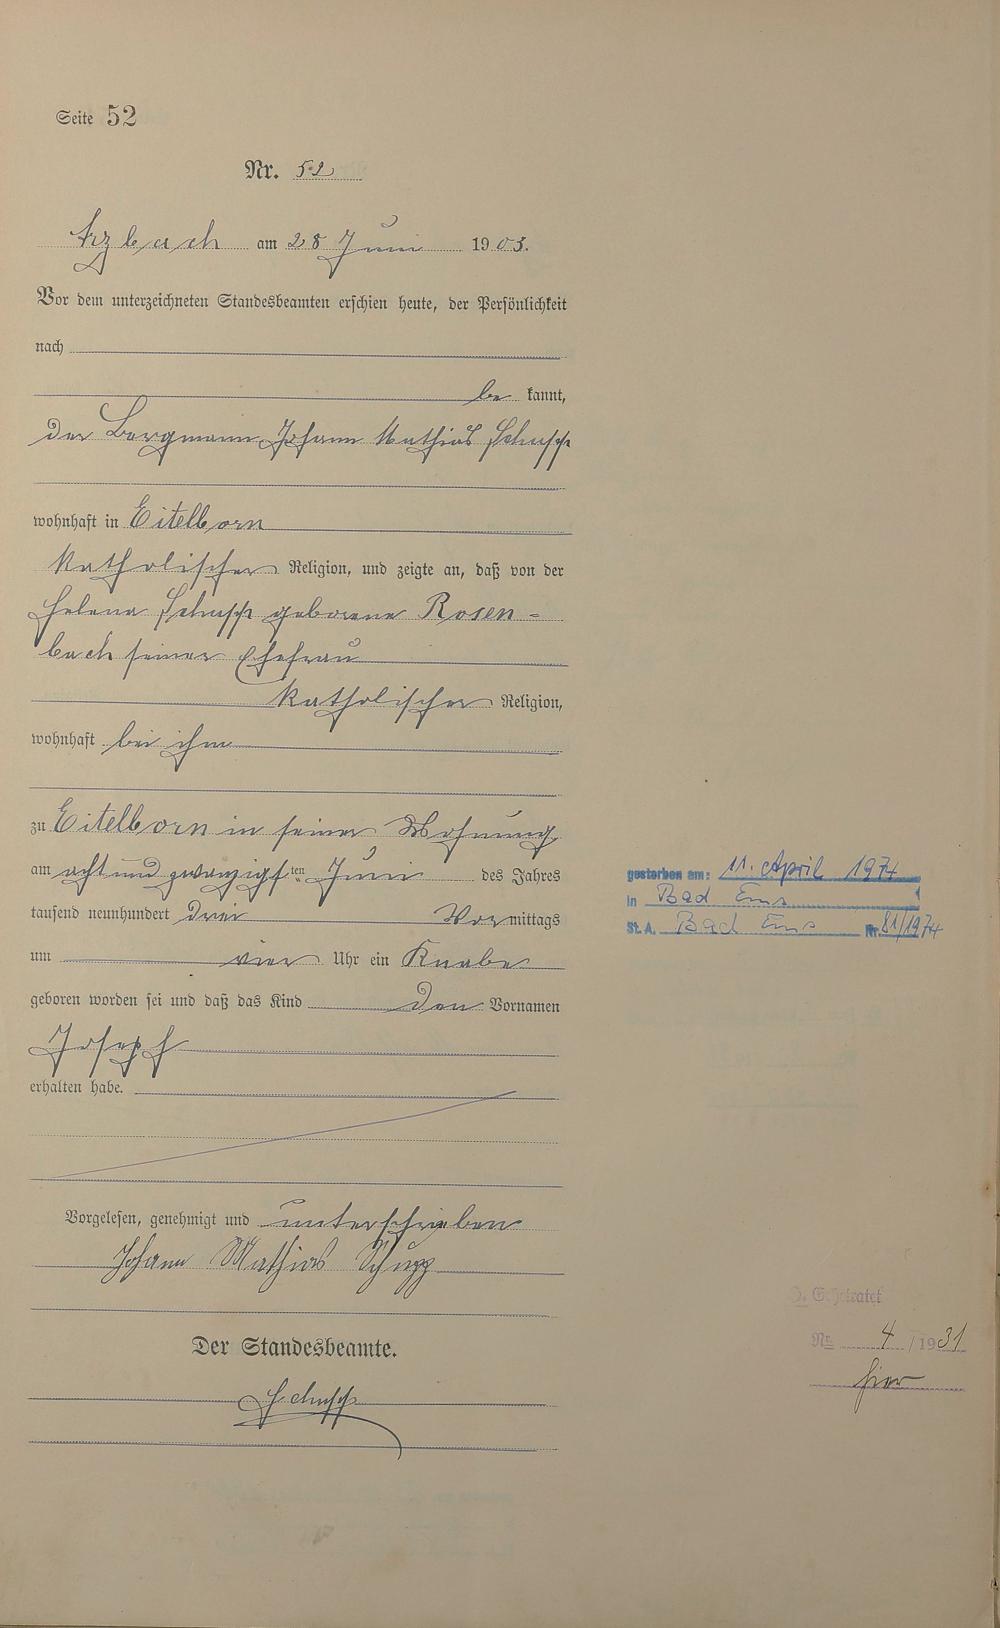 Seite 52
Nr. 52
Arzbach am 28 Juni 1903.
Vor dem unterzeichneten Standesbeamten erschien heute, der Persönlichkeit
nach
be kannt,
der Bergmann Johann Mathias Schupp
wohnhaft in Eitelborn
katholischer Religion, und zeigte an, daß von der
Helena Schupp geborene Rosen-
bach seiner Ehefrau
katholischer Religion,
wohnhaft bei ihm
zu Eitelborn in seiner Wohnung
am acht und zwanzigsten Juni des Jahres
tausend neunhundert drei Vor mittags
um vier Uhr ein Knabe
geboren worden sei und daß das Kind den Vornamen
Joseph
erhalten habe.
Vorgelesen, genehmigt und unterschrieben
Johann Mathias Schupp
Der Standesbeamte.
Schupp
gestorben am: 11. April 1974
in Bad Ems
St. A. Bad Ems Nr. 81/1974
Geheiratet
Nr. 4 / 1931
hier